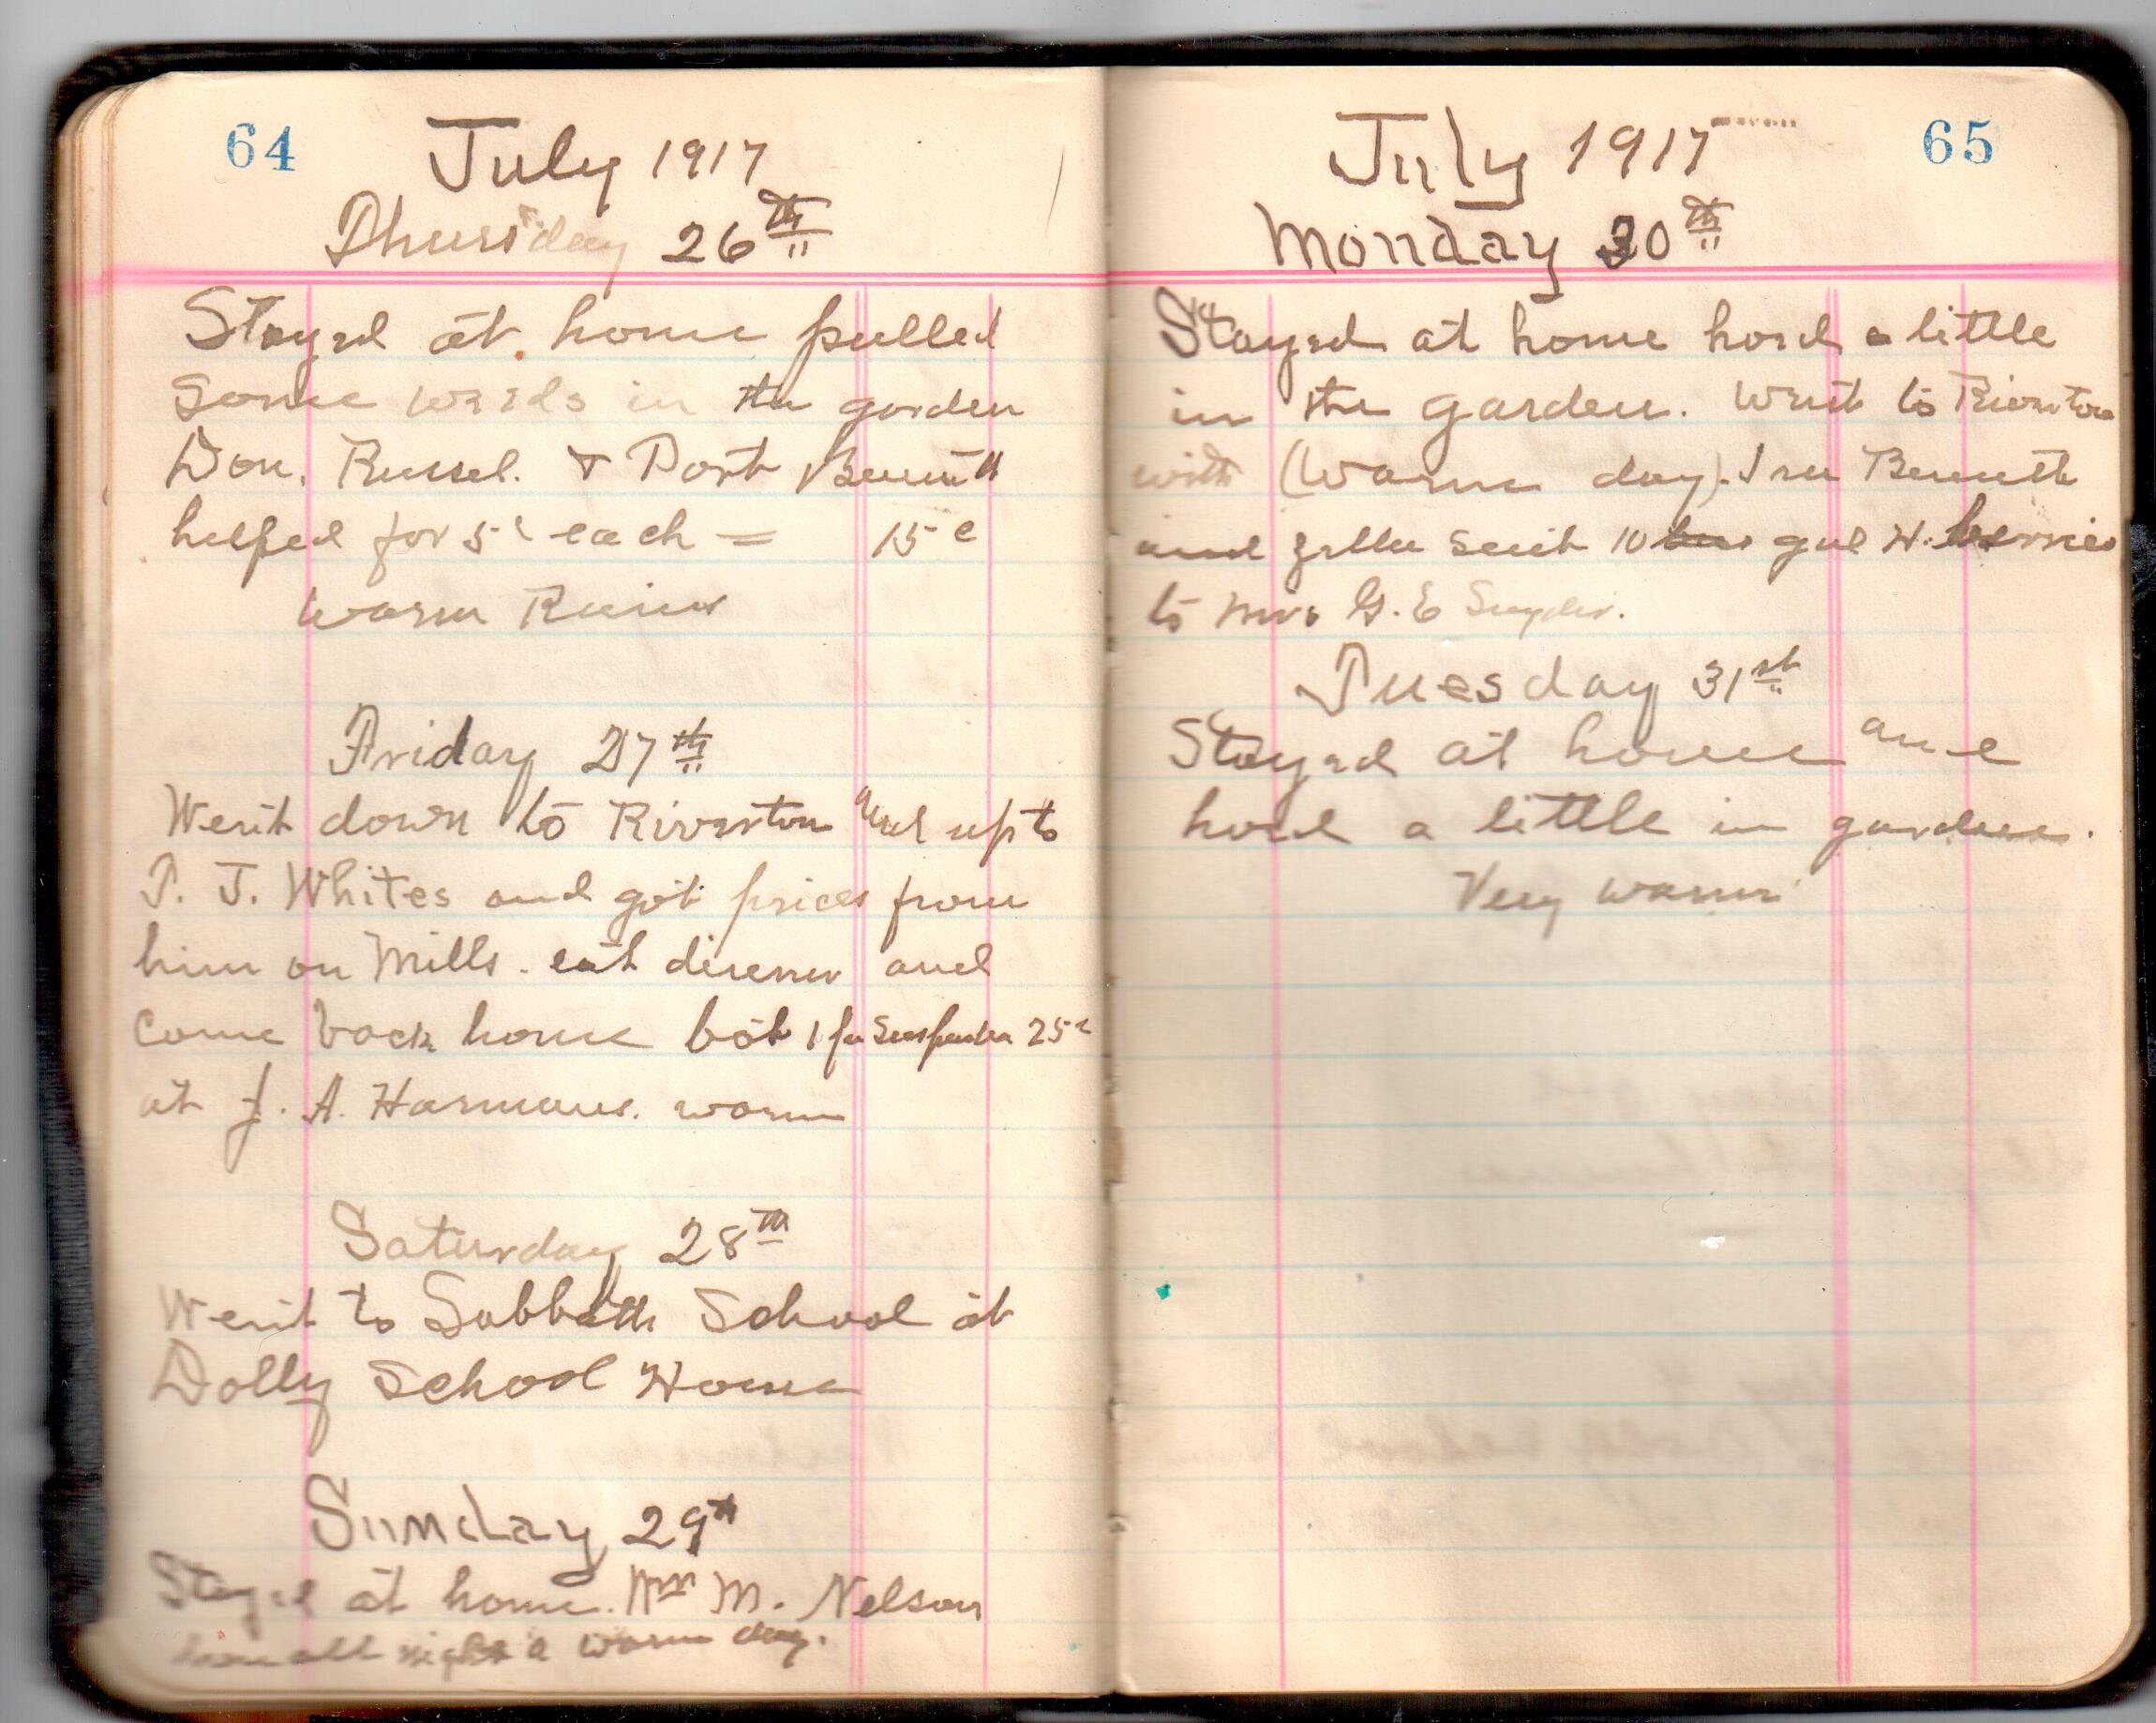 64
July 1917
Thursday 26th
Stayed at home pulled
some weeds in the garden
Don. Russel. & Port Bennett
helped for 5c each = 15c
Warm Rains
Friday 27th
Went down to Riverton and up to
P. J. Whites and got prices from
him on Mills. eat dinner and
come back home bot 1 pr Suspenders 25c
at J. A. Harmans. warm
Saturday 28th
Went to Sabbath School at
Dolly School House
Sunday 29th
Stayed at home. Wm M. Nelson
here all night a warm day.
65
July 1917
Monday 30th
Stayed at home hoed a little
in the garden. Went to Riverton
with (Warm day). Bennett
and sent 10 gal H. berries
to Mrs G. E Snyder.
Tuesday 31st
Stayed at home and
hoed a little in garden.
Very warm